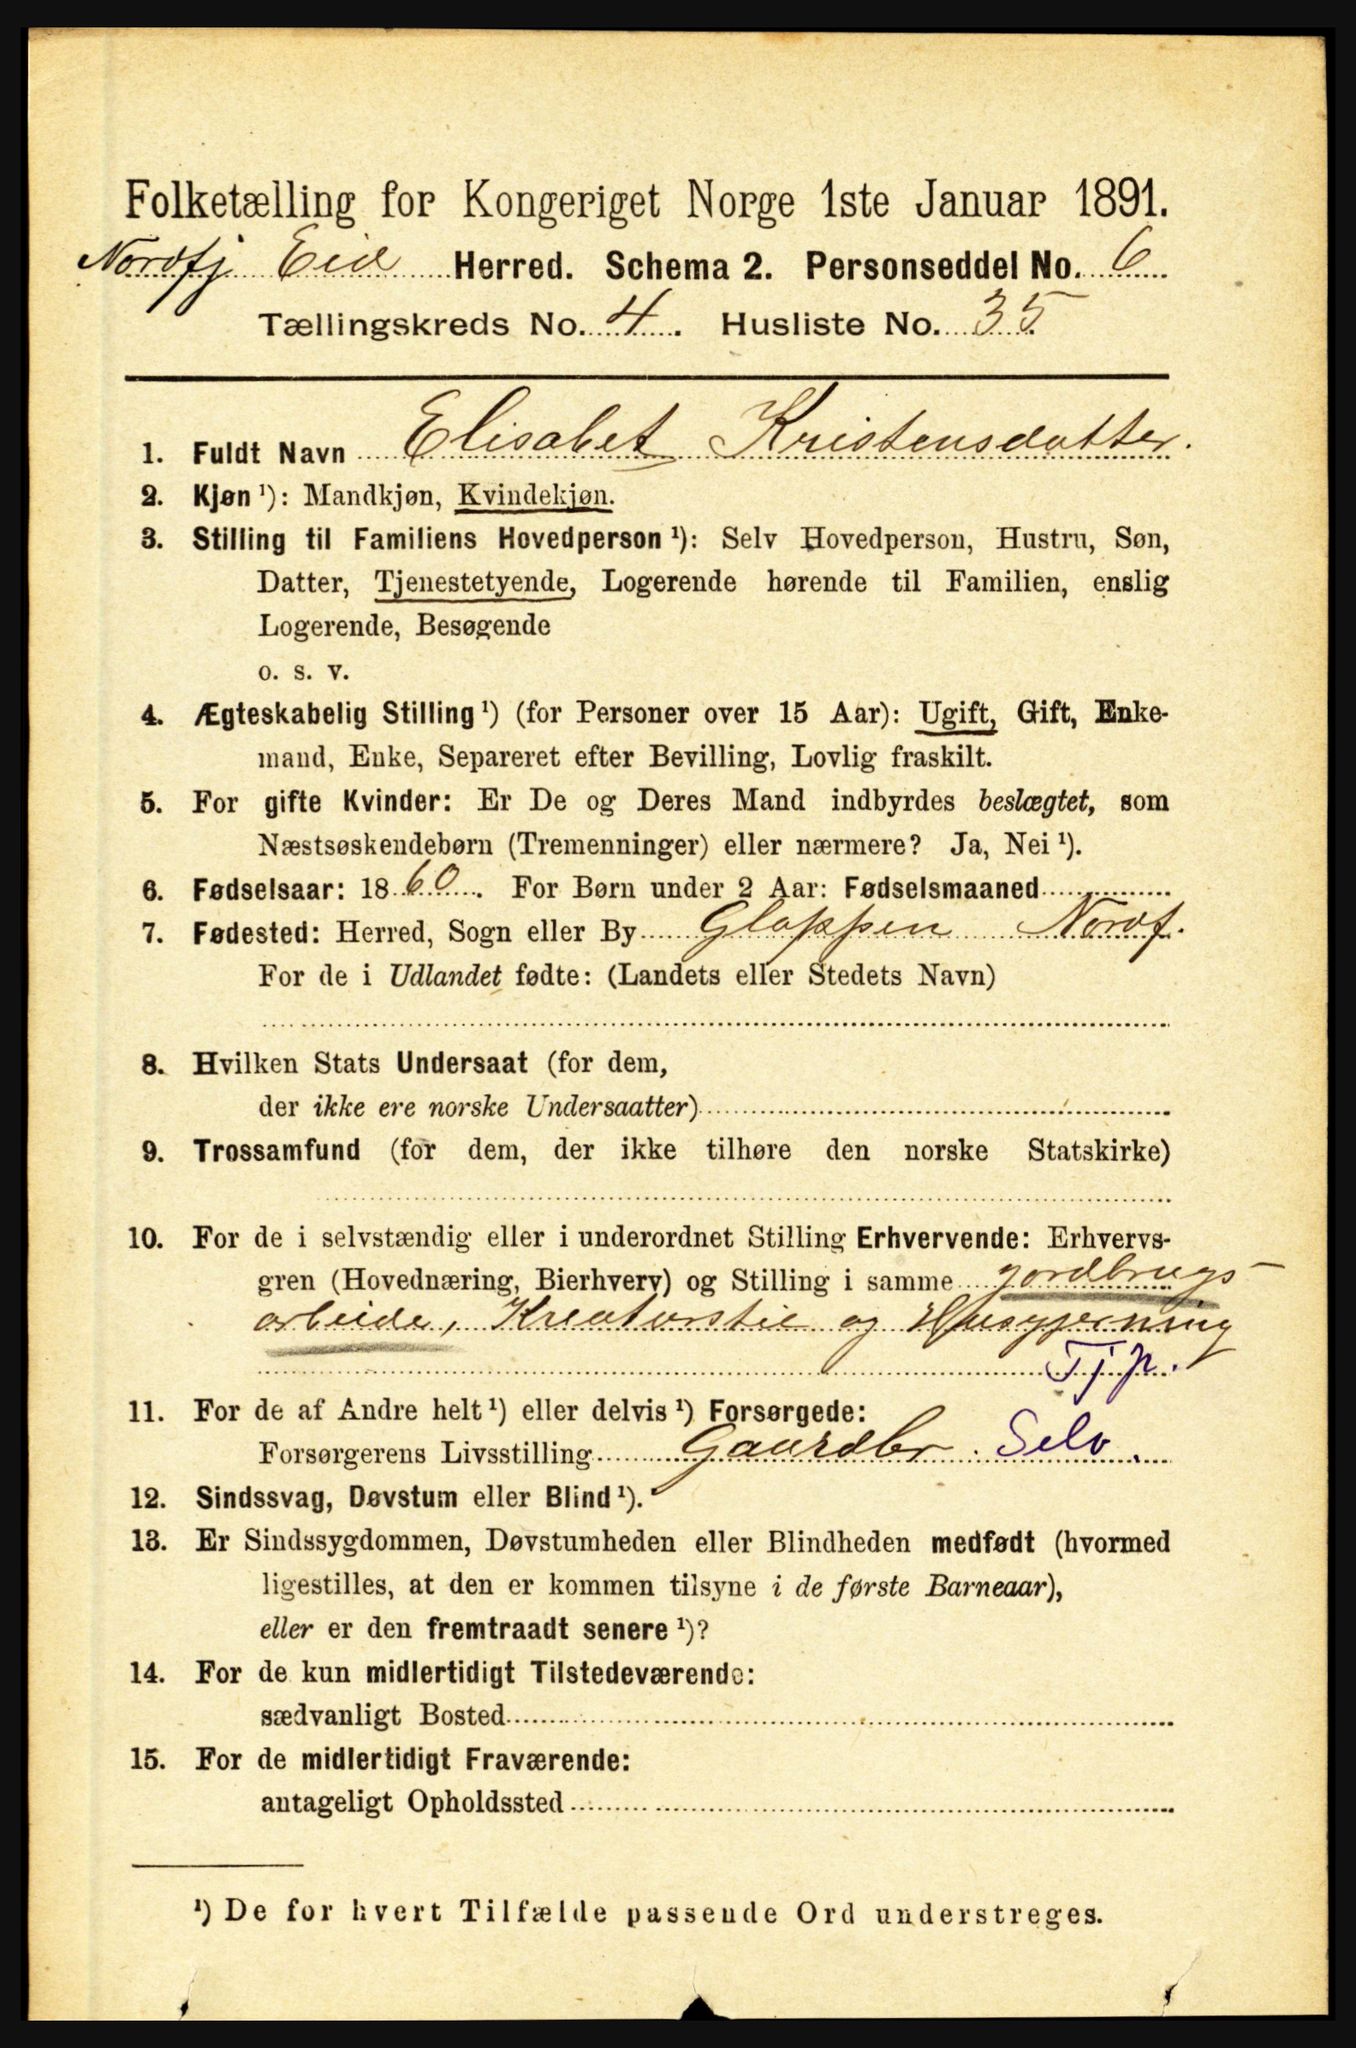 Folketælling for Kongeriget Norge 1ste Januar 1891.
Nordfj Eid Herred. Schema 2. Personseddel No. 6
Tællingskreds No. 4. Husliste No. 35
1. Fuldt Navn Elisabet Kristensdatter.
2. Kjøn ¹): Mandkjøn, Kvindekjøn.
3. Stilling til Familiens Hovedperson ¹): Selv Hovedperson, Hustru, Søn,
Datter, Tjenestetyende, Logerende hørende til Familien, enslig
Logerende, Besøgende
o. s. v.
4. Ægteskabelig Stilling ¹) (for Personer over 15 Aar): Ugift, Gift, Enke-
mand, Enke, Separeret efter Bevilling, Lovlig fraskilt.
5. For gifte Kvinder: Er De og Deres Mand indbyrdes beslægtet, som
Næstsøskendebørn (Tremenninger) eller nærmere? Ja, Nei ¹).
6. Fødselsaar: 1860. For Børn under 2 Aar: Fødselsmaaned
7. Fødested: Herred, Sogn eller By Gloppen Nordf.
For de i Udlandet fødte: (Landets eller Stedets Navn)
8. Hvilken Stats Undersaat (for dem,
der ikke ere norske Undersaatter)
9. Trossamfund (for dem, der ikke tilhøre den norske Statskirke)
10. For de i selvstændig eller i underordnet Stilling Erhvervende: Erhvervs-
gren (Hovednæring, Bierhverv) og Stilling i samme Jordbrugs-
arbeide, Kreaturstel og Husgjerning
Tjp.
11. For de af Andre helt ¹) eller delvis ¹) Forsørgede:
Forsørgerens Livsstilling Gaardbr. Selv.
12. Sindssvag, Døvstum eller Blind ¹).
13. Er Sindssygdommen, Døvstumheden eller Blindheden medfødt (hvormed
ligestilles, at den er kommen tilsyne i de første Barneaar),
eller er den fremtraadt senere ¹)?
14. For de kun midlertidigt Tilstedeværende:
sædvanligt Bosted
15. For de midlertidigt Fraværende:
antageligt Opholdssted
¹) De for hvert Tilfælde passende Ord understreges.